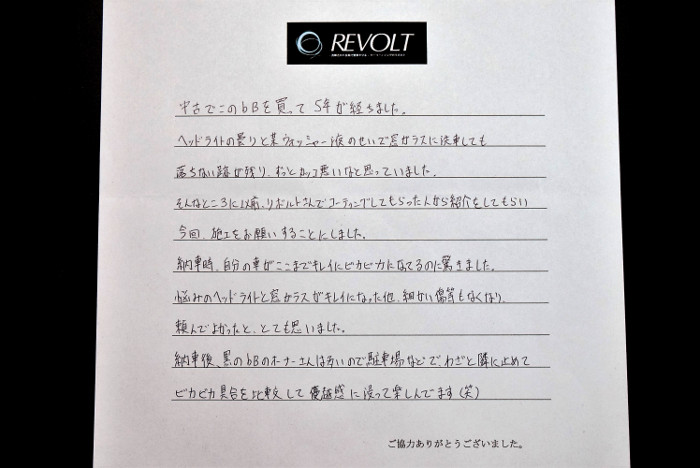 REVOLT
中古でこのbBを買って5年が経ちました。
ヘッドライトの曇りと某ウォッシャー液のせいで窓ガラスに洗車しても
落ちない跡が残り、ずっとカッコ悪いなと思っていました。
そんなところに以前、リボルトさんでコーティングしてもらった人から紹介をしてもらい
今回、施工をお願いすることにしました。
納車時、自分の車がここまでキレイにピカピカになってるのに驚きました。
悩みのヘッドライトと窓ガラスがキレイになった他、細かい傷等もなくなり、
頼んでよかったと、とても思いました。
納車後、黒のbBのオーナーさんは多いので駐車場などで、わざと隣に止めて
ピカピカ具合を比較して優越感に浸って楽しんでます(笑)
ご協力ありがとうございました。